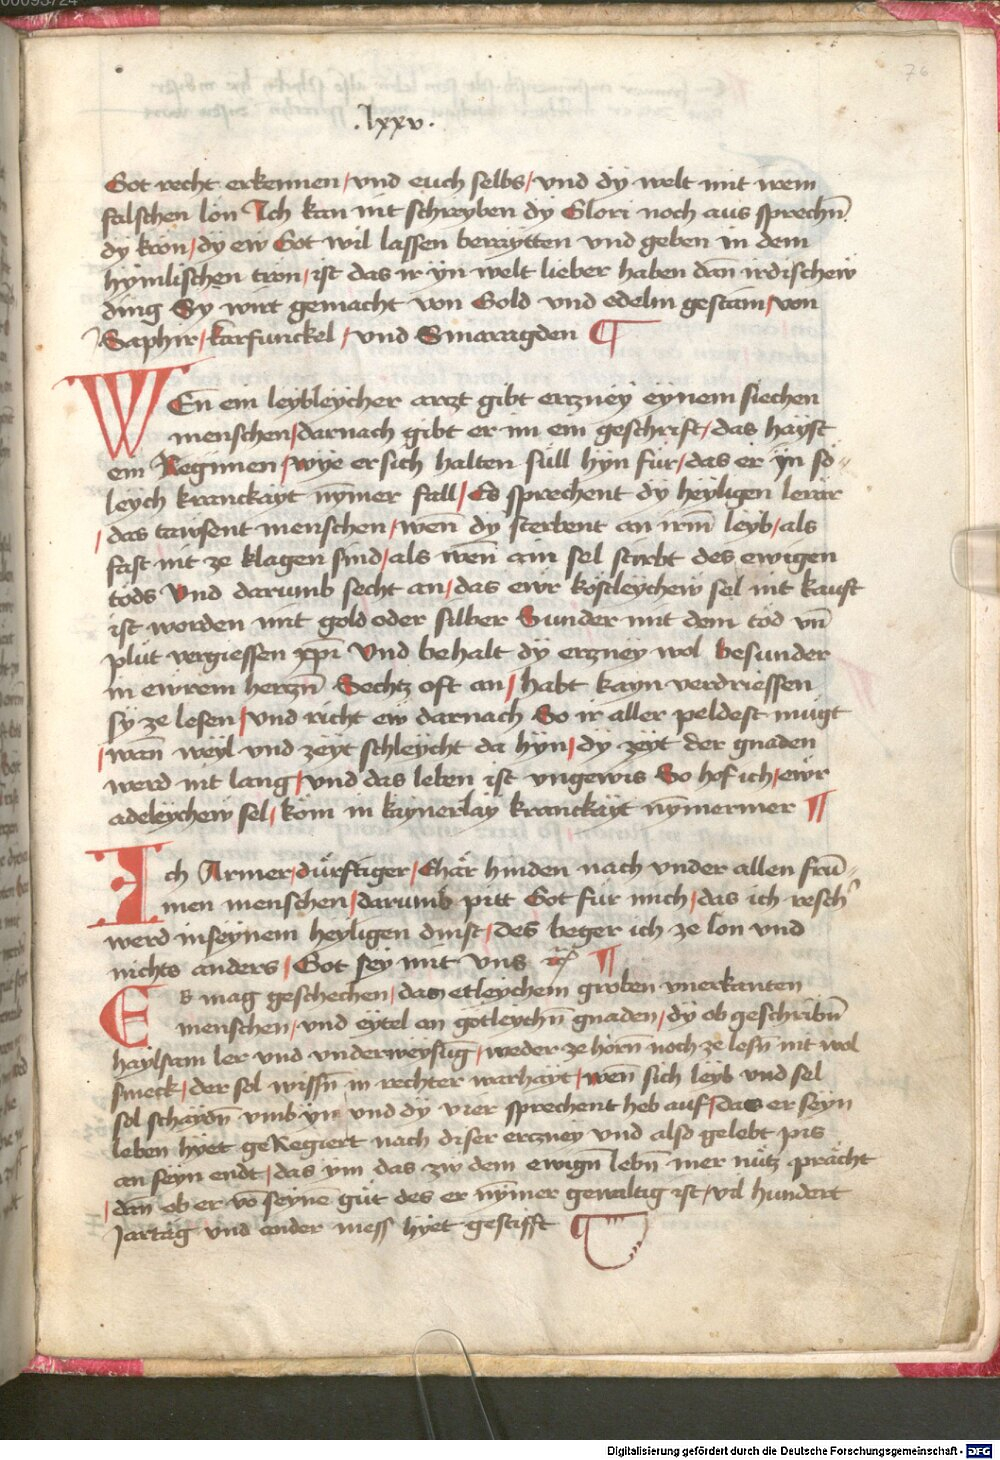 76
.lxxv.
Got recht erkennen / vnd euch selbs / vnd dy welt mit irem
falschen lon Ich kan nit schreyben dy Glori noch aus sprechn̄
dy kron / dy ew Got wil lassen beraytten vnd geben in dem
hymlischen tron / ist das ir yn welt lieber haben dan̄ irdischew
ding Sy wirt gemacht von Gold vnd edelm gestain / von
Saphir / karfunckel / vnd Smaragden ¶
WEn ein leybleycher arczt gibt erczney eynem siechen
menschen / darnach gibt er im ein geschrift / das hayst
ein Regimen / wye er sich halten süll hyn für / das er yn sö-
leych kranckayt nȳmer fall / Es sprechent dy heyligen lerär
/ das tawsent menschen / wen̄ dy sterbent an irm̄ leyb / als
fast nit ze klagen sind / als wen̄ ain sel stirbt des ewigen
tods Vnd darumb secht an / das ewr köstleychew sel nit kauft
ist worden mit gold oder silber Sunder mit dem tod vn̄
plüt vergiessen xp̄i Vnd behalt dy erczney wol besunder
in ewrem herczn̄ Sechtz oft an / habt kayn verdriessen
sy ze lesen / vnd richt ew darnach So ir aller peldest mügt
/ wan̄ weyl vnd zeyt schleycht da hyn / dy zeyt der gnaden
werd nit lang / vnd das leben ist vngewis So hof ich / ewr
adeleychew sel / köm in kaynerlay kranckayt nȳmermer ¶
Ich Armer / dürftiger / Chär hinden nach vnder allen frū-
men menschen / darumb pitt Got für mich / das ich resch
werd in seynem heyligen dinst / des beger ich ze lon vnd
nichts anders / Got sey mit vns ¶
Es mag geschechen / das etleychem groben vnerkanten
menschen / vnd eytel an götleychn̄ gnaden / dy ob geschribn̄
haylsam ler vnd vnderweysūg / weder ze hörn̄ noch ze lesn̄ nit wol
smeck / der sol wissn̄ in rechter warhayt / wen̄ sich leyb vnd sel
sol schaydn̄ vmb yn vnd dy vier sprechent heb auf / das er seyn
leben hyet geRegiert nach diser erczney vnd also gelebt pis
an seyn endt / das ym das zw dem ewign̄ lebn̄ mer nütz prächt
/ dan̄ ob er vō seynē güt des er nȳmer gewaltig ist / vil hundert
Jartäg vnd ander mess hyet gestifft
Digitalisierung gefördert durch die Deutsche Forschungsgemeinschaft - DFG